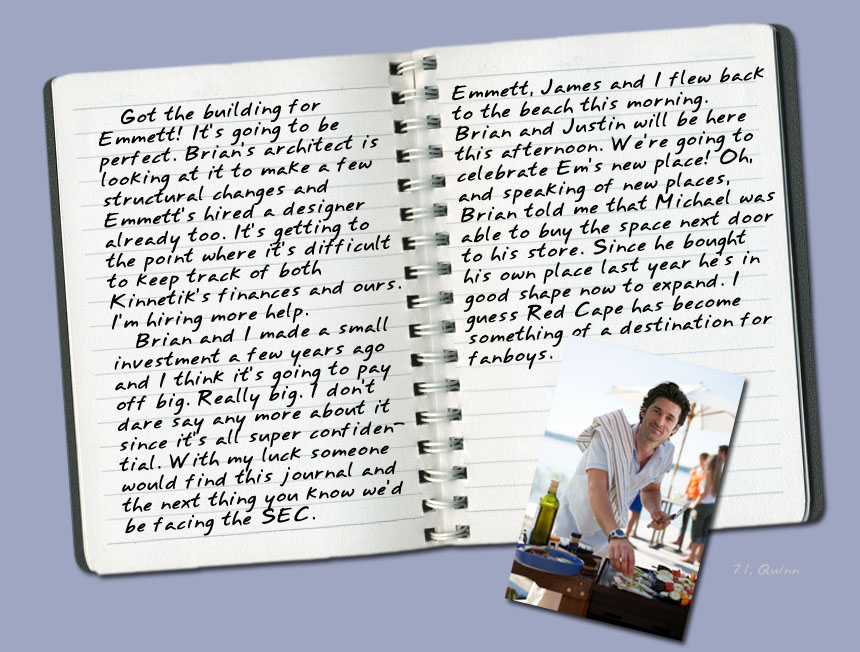 Got the building for
Emmett! It's going to be
perfect. Brian's architect is
looking at it to make a few
structural changes and
Emmett's hired a designer
already too. It's getting to
the point where it's difficult
to keep track of both
Kinnetik's finances and ours.
I'm hiring more help.
Brian and I made a small
investment a few years ago
and I think it's going to pay
off big. Really big. I don't
dare say any more about it
since it's all super confiden-
tial. With my luck someone
would find this journal and
the next thing you know we'd
be facing the SEC.
Emmett, James and I flew back
to the beach this morning.
Brian and Justin will be here
this afternoon. We're going to
celebrate Em's new place! Oh,
and speaking of new places,
Brian told me that Michael was
able to buy the space next door
to his store. Since he bought
his own place last year he's in
good shape now to expand. I
guess Red Cape has become
something of a destination for
fanboys.
71. Quinn